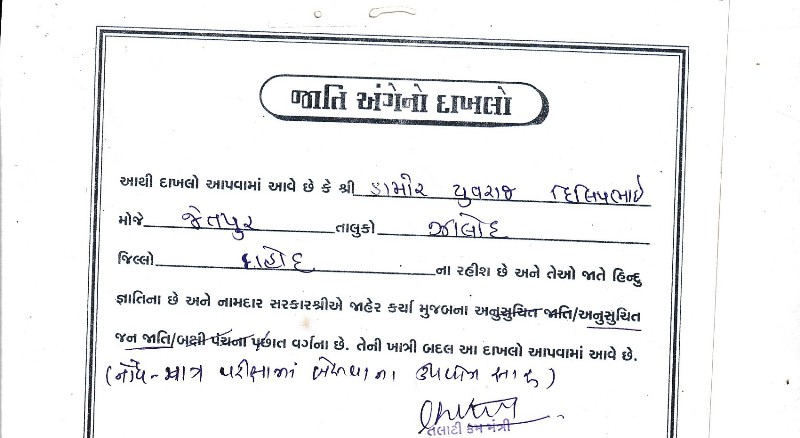 જાતિ અંગેનો દાખલો
આથી દાખલો આપવામાં આવે છે કે શ્રી ડામોર યુવરાજ દિલિપભાઇ
મોજે જેતપુર તાલુકો ઝાલોદ
જિલ્લો દાહોદ ના રહીશ છે અને તેઓ જાતે હિન્દુ
જ્ઞાતિના છે અને નામદાર સરકારશ્રીએ જાહેર કર્યા મુજબના અનુસુચિત જાતિ/અનુસુચિત
જન જાતિ/બક્ષી પંચના પછાત વર્ગના છે. તેની ખાત્રી બદલ આ દાખલો આપવામાં આવે છે.
(નોંધ - માત્ર પરીક્ષામાં બેસવાના ઉપયોગ સારૂ)
તલાટી કમ મંત્રી